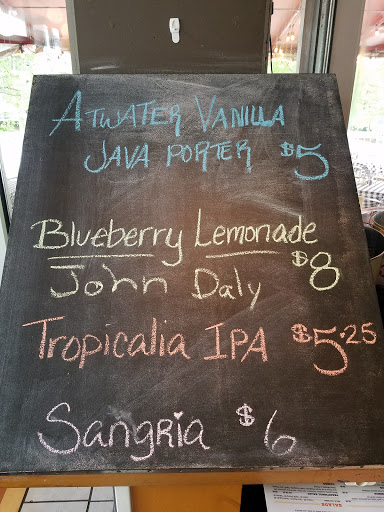 ATWATER VANILLA
JAVA PORTER $5
Blueberry Lemonade
John Daly $8
Tropicalia IPA $5.25
Sangria $6